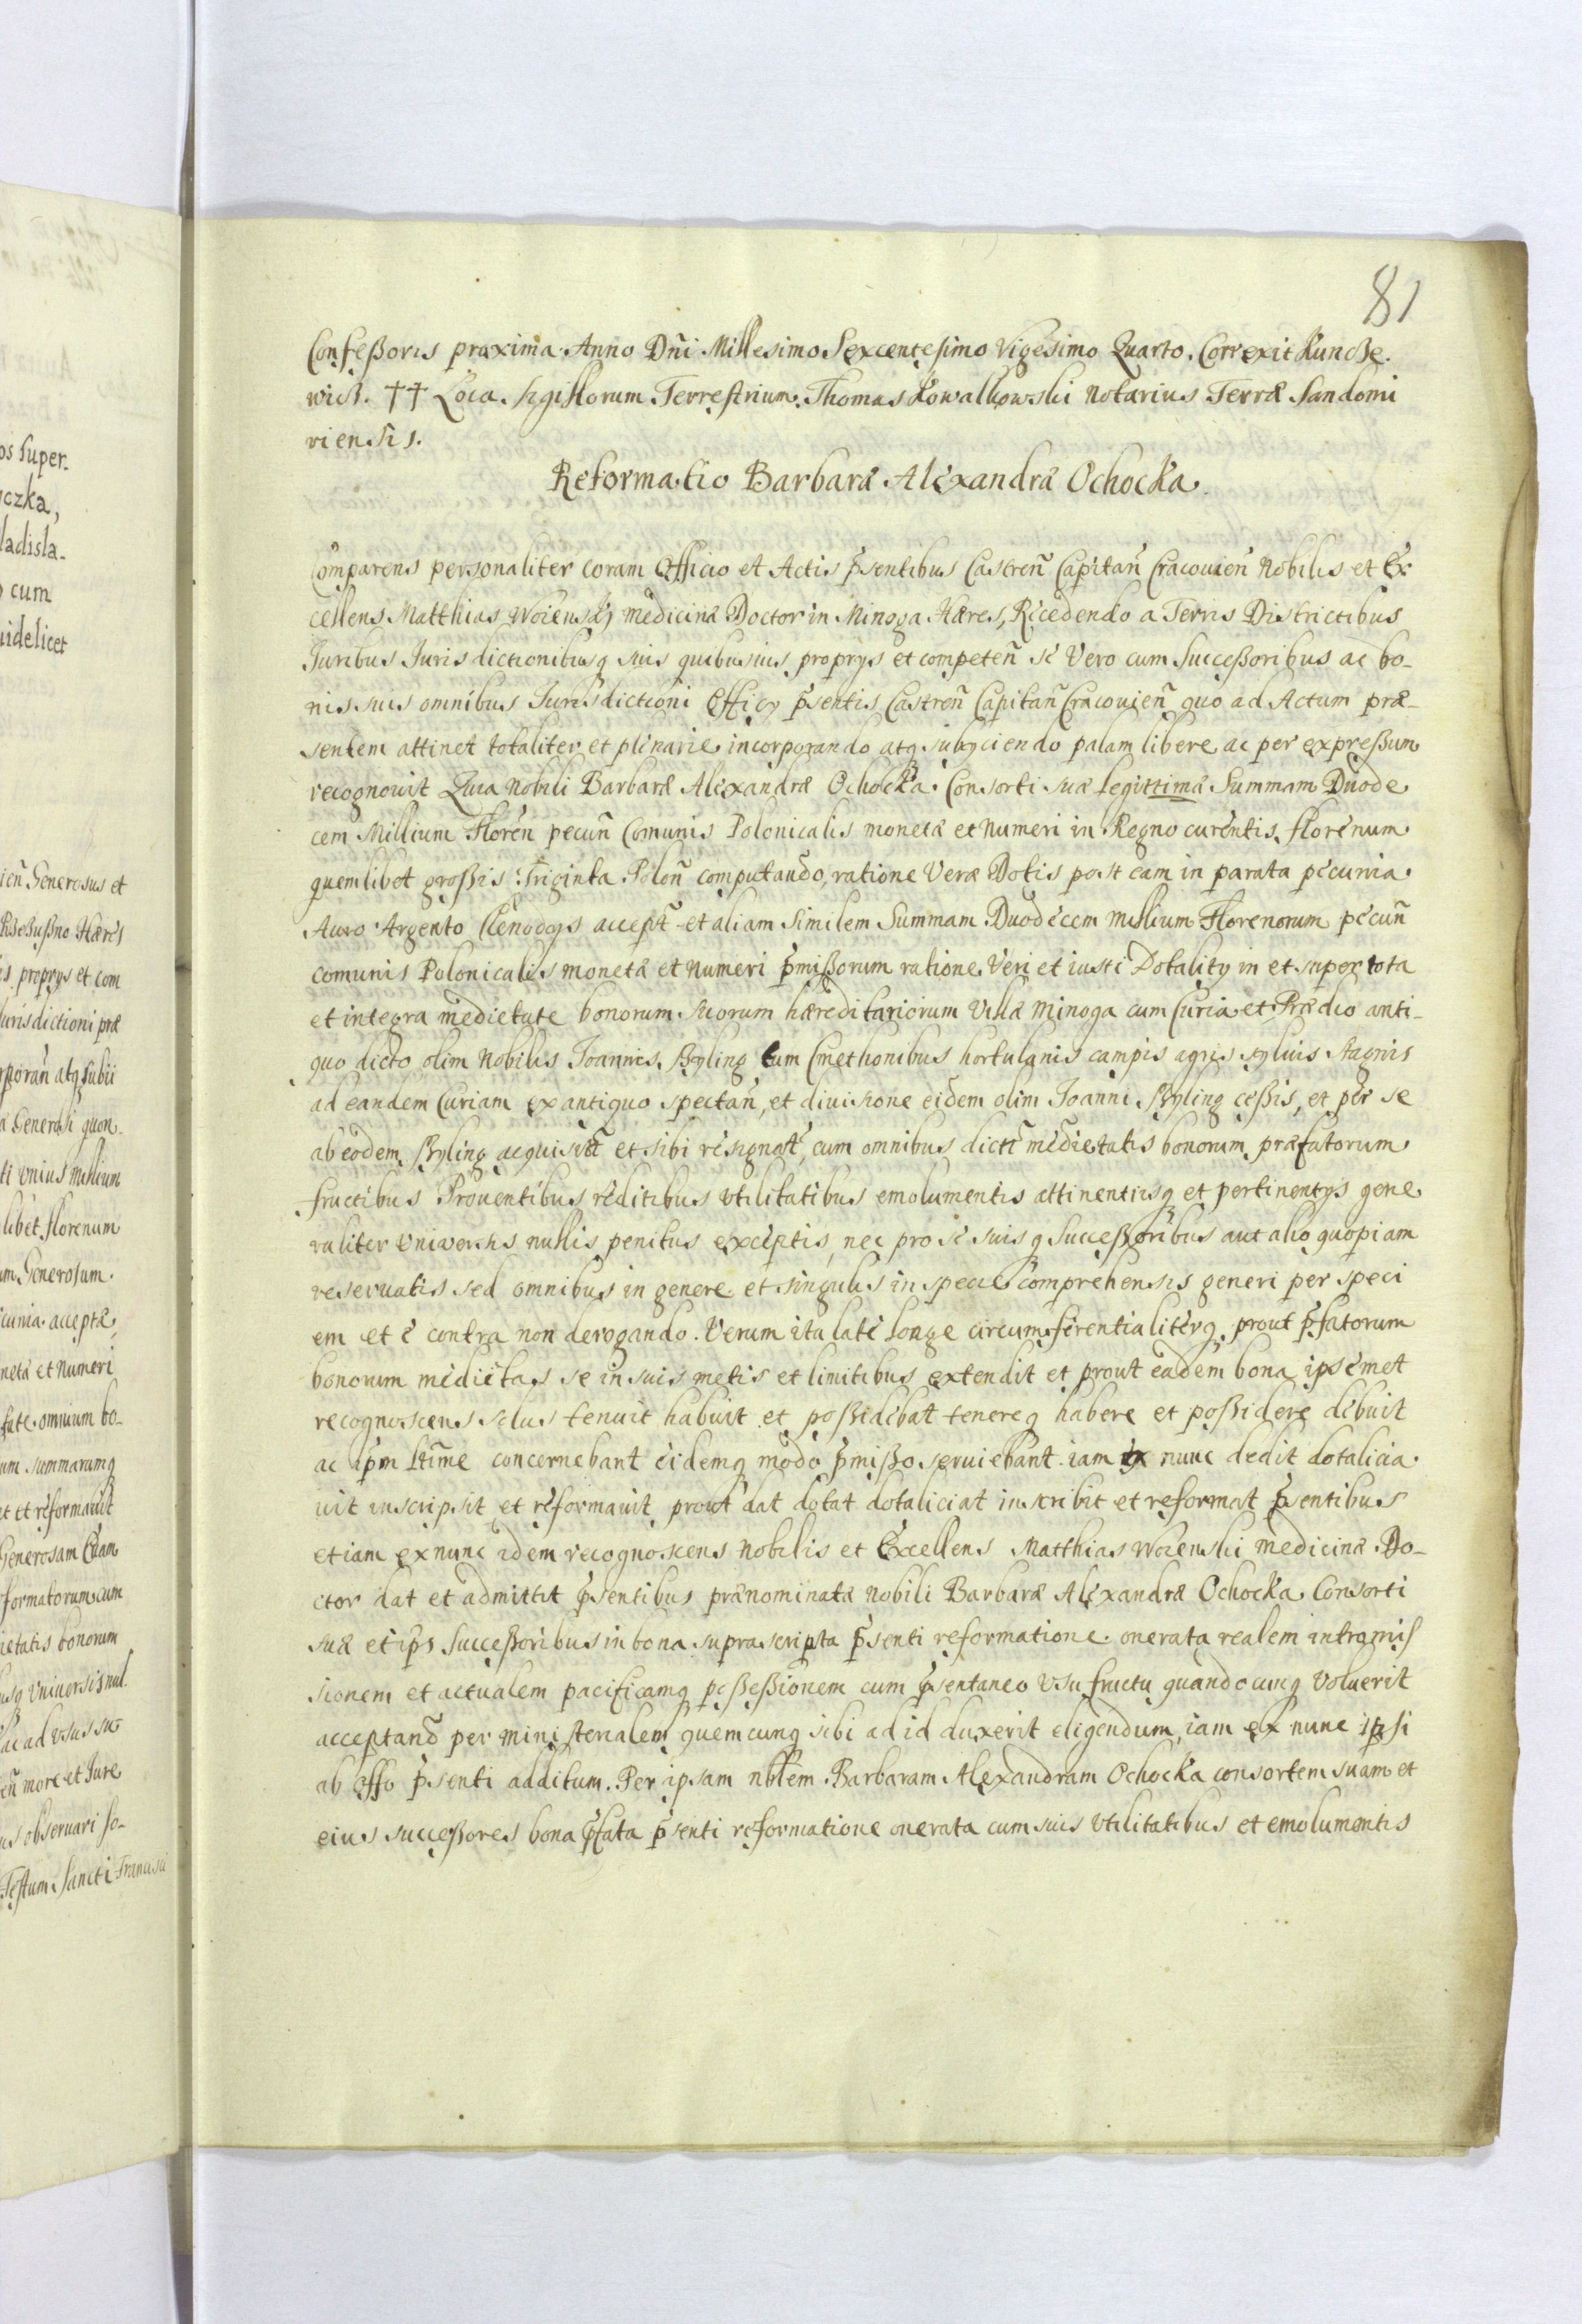 81
Confeßoris proxima Anno Dñi Millesimo Sexcentesimo Vigesimo Quarto. Correxit Kuncze.
wicz. ✝✝ Loca Sigillorum Terrestrium. Thomas Kowalkowski Notarius Terræ Sandomi
riensis.
Reformatio Barbaræ Alexandræ Ochocka
Comparens personaliter coram Officio et Actis p̃sentibus Castreñ Capitañ Cracouieñ Nobilis et Ex
cellens Matthias Woienskj medicinæ Doctor in Minoga Hæres, Recedendo a Terris Districtibus
Juribus Jurisdictionibusq suis quibusuis proprys et competeñ se Vero cum Succeßoribus ac bo-
nis suis omnibus Jurisdictioni Officy p̃sentis Castreñ Capitañ Cracouieñ quo ad Actum præ-
sentem attinet totaliter et plenarie incorporando atq subyciendo palam libere ac per expreßum
recognouit Quia Nobili Barbaræ Alexandræ Ochocka Consorti suæ legittimæ Summam Duode
cem Millium Floren pecuñ Comunis Polonicalis monetæ et Numeri in Regno curentis, florenum
quemlibet großis Triginta Poloñ computando, ratione Veræ Dotis post eam in parata pecunia
Auro Argento Clenodys accept̃ et aliam similem Summam Duodecem millium Florenorum pecuñ
comunis Polonicalis monetæ et Numeri p̃mißorum ratione Veri et iusti Dotality in et super tota
et integra medietate bonorum suorum hæreditariorum Villæ Minoga cum Curia et Prædio anti-
quo dicto olim Nobilis Joannis Szyling cum Cmethonibus hortulanis campis agris syluis stagnis
ad eandem Curiam ex antiquo spectañ, et diuisione eidem olim Joanni Szyling ceßis, et per se
ab eodem Szyling acquisit̃ et sibi resignat̃, cum omnibus dictæ medietatis bonorum præfatorum
fructibus Prouentibus reditibus vtilitatibus emolumentis attinentiisq et pertinentys gene
raliter Vniversis nullis penitus exceptis, nec pro se suisq Succeßoribus aut alio quopiam
reseruatis sed omnibus in genere et singulis in specie comprehensis generi per speci
em et e contra non derogando. Verum ita late longe circumferentialiterq prout p̃fatorum
bonorum medietas se in suis metis et limitibus extendit et prout eadem bona ipsemet
recognoscens solus tenuit habuit et poßidebat tenereq habere et poßidere debuit
ac ip̃m ltt̃me concernebant eidemq modo p̃mißo seruiebant iam ex nunc dedit dotalicia
uit inscripsit et reformauit prout dat dotat dotaliciat inscribit et reformat p̃sentibus
etiam ex nunc idem recognoscens Nobilis et Excellens Matthias Woienski medicinæ Do-
ctor dat et admittit p̃sentibus prænominatæ Nobili Barbaræ Alexandræ Ochocka Consorti
suæ et ip̃s Succeßoribus in bona suprascripta p̃senti reformatione onerata realem intromis
sionem et actualem pacificamq poßeßionem cum p̃sentaneo Vsufructu quandocunq Voluerit
acceptand̃ per ministerialem quemcunq sibi ad id duxerit eligendum, iam ex nunc ipsi
ab Offo p̃senti additum. Per ipsam nbl̃em Barbaram Alexandram Ochocka consortem suam et
eius succeßores bona p̃fata p̃senti reformatione onerata cum suis Vtilitatibus et emolumentis
os super-
czka,
ladisla-
cum
uidelicet
ieñ Generosus et
Hæres
is proprys et com
Jurisdictioni præ
rporañ atq subii
a Generosi quon-
ti Vnius millium
libet florenum
um Generosum
cunia acceptæ,
netæ et Numeri
tate omnium bo-
um summarumq
et et reformauit
Generosam Euam
formatorum cum
ietatis bonorum
usq Vniuersis nul
ac ad Vsus suo
eñ more et Jure
us obseruari so-
Festum Sancti Francisci